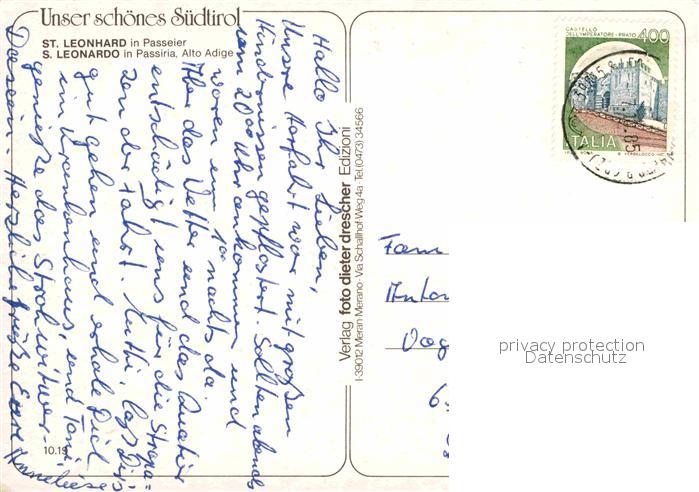 Unser schönes Südtirol
ST. LEONHARD in Passeier
S. LEONARDO in Passiria, Alto Adige
Hallo Ihr Lieben,
Unsre Herfahrt war mit großen
Hindernissen gepflastert. Sollten abends
um 20°° Uhr ankommen und
waren um 1°° nachts da.
Aber das Wetter und das Quatier
entschädigt uns für die Strapa=
zen der Fahrt. Kathi, lass Dirs
gut gehen und erhole Dich
im Krankenhaus, und Toni,
genieße das Strohwitwer-
Dasein. Herzliche Grüße Eure
Anneliese
10.19
Verlag foto dieter drescher Edizioni
I-39012 Meran-Merano · Via Schallhof-Weg 4a · Tel. (0473) 34566
CASTELLO
DELL'IMPERATORE - PRATO 400
ITALIA
Fam
Anton
Vog
6
8
privacy protection
Datenschutz